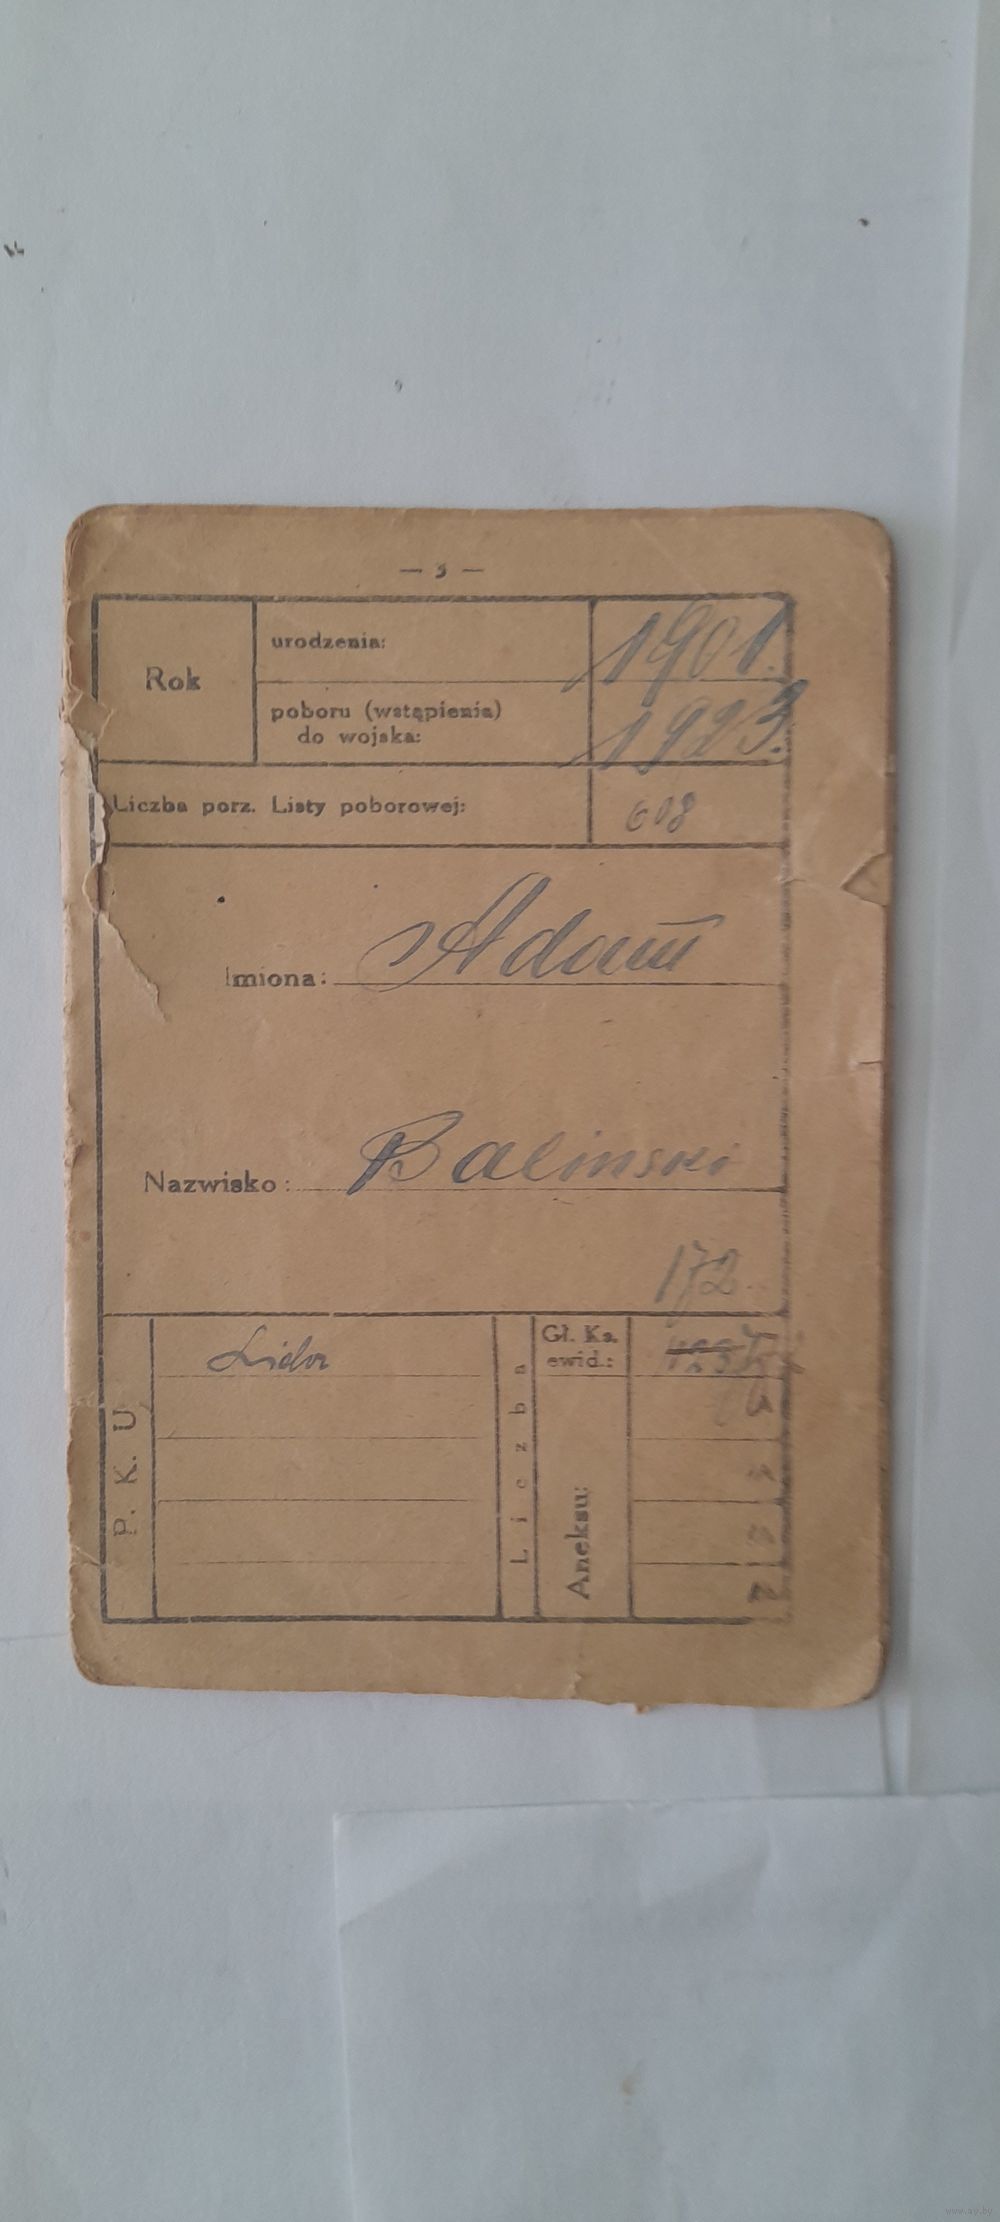 — 3 —
Rok
urodzenia:
1901.
poboru (wstąpienia)
do wojska:
1923.
Liczba porz. Listy poborowej:
608
Imiona: Adam
Nazwisko: Balinski
172
P. K. U.
Lida
Liczba
Gł. Ks.
ewid.:
Aneksu:
www.ay.by